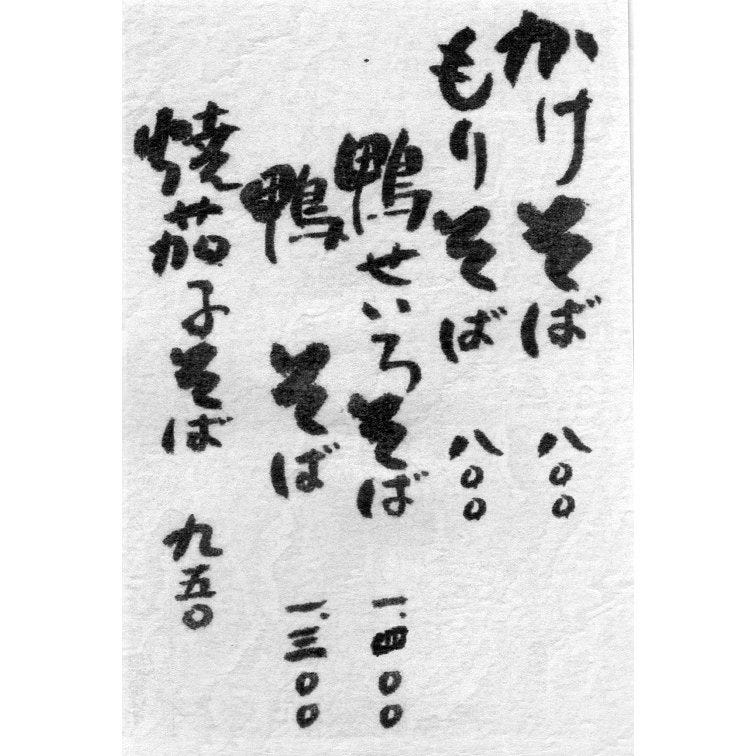 かけそば 八〇〇
もりそば 八〇〇
鴨せいろそば 一.四〇〇
鴨そば 一.三〇〇
焼茄子そば 九五〇